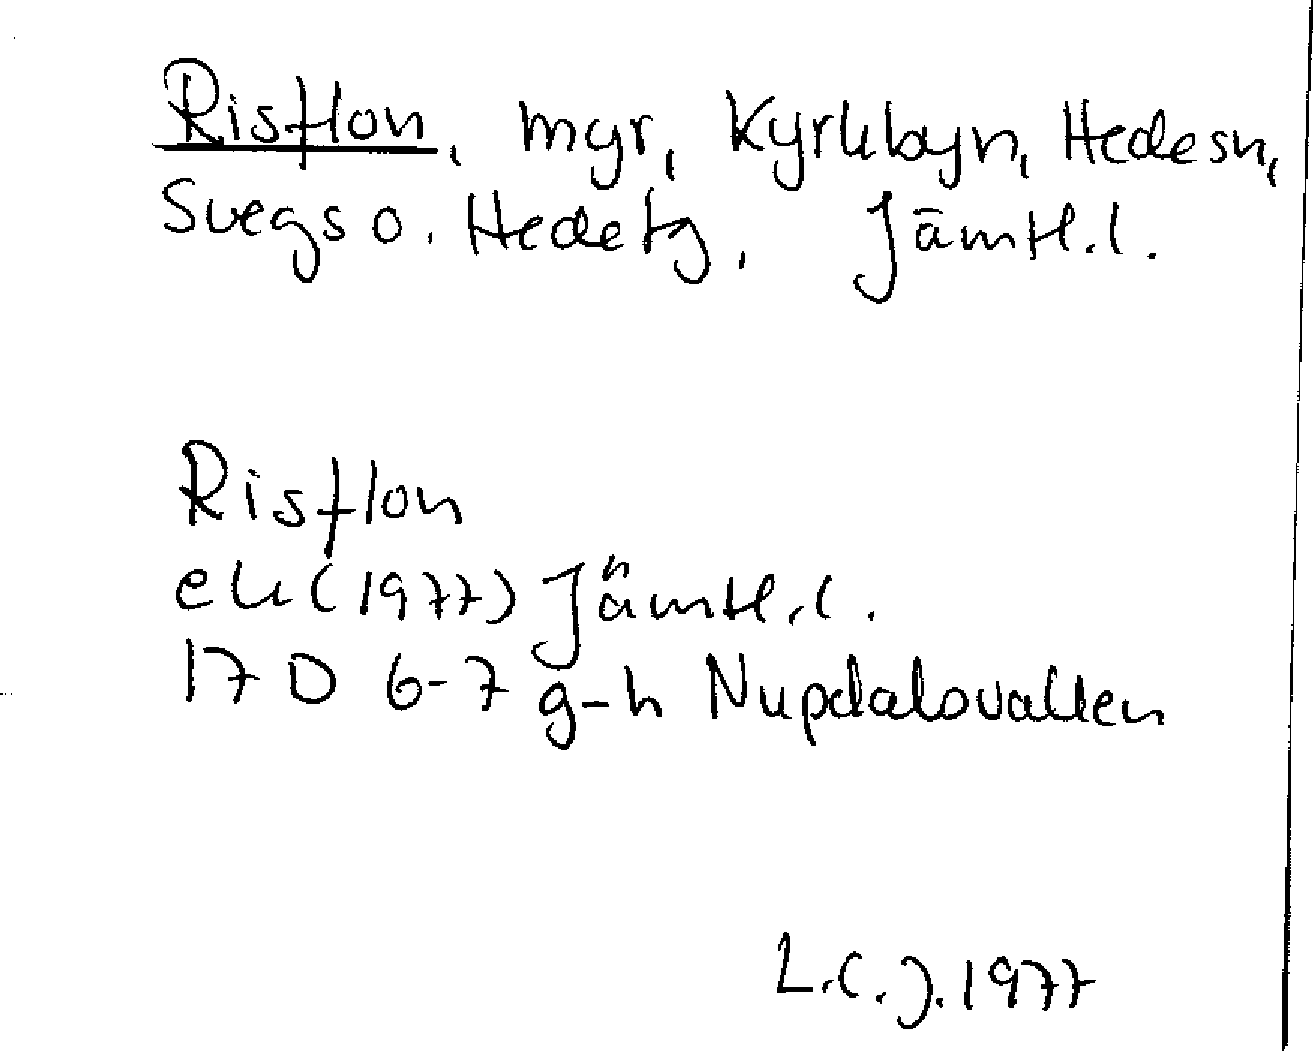 Risflon, myr, Kyrkbyn, Hedesn,
Svegs o. Hedetg, Jämtl.l.
Risflon
ek (1977) Jämtl.l.
17 D 6-7 g-h Nupdalsvallen
L.C.J. 1977